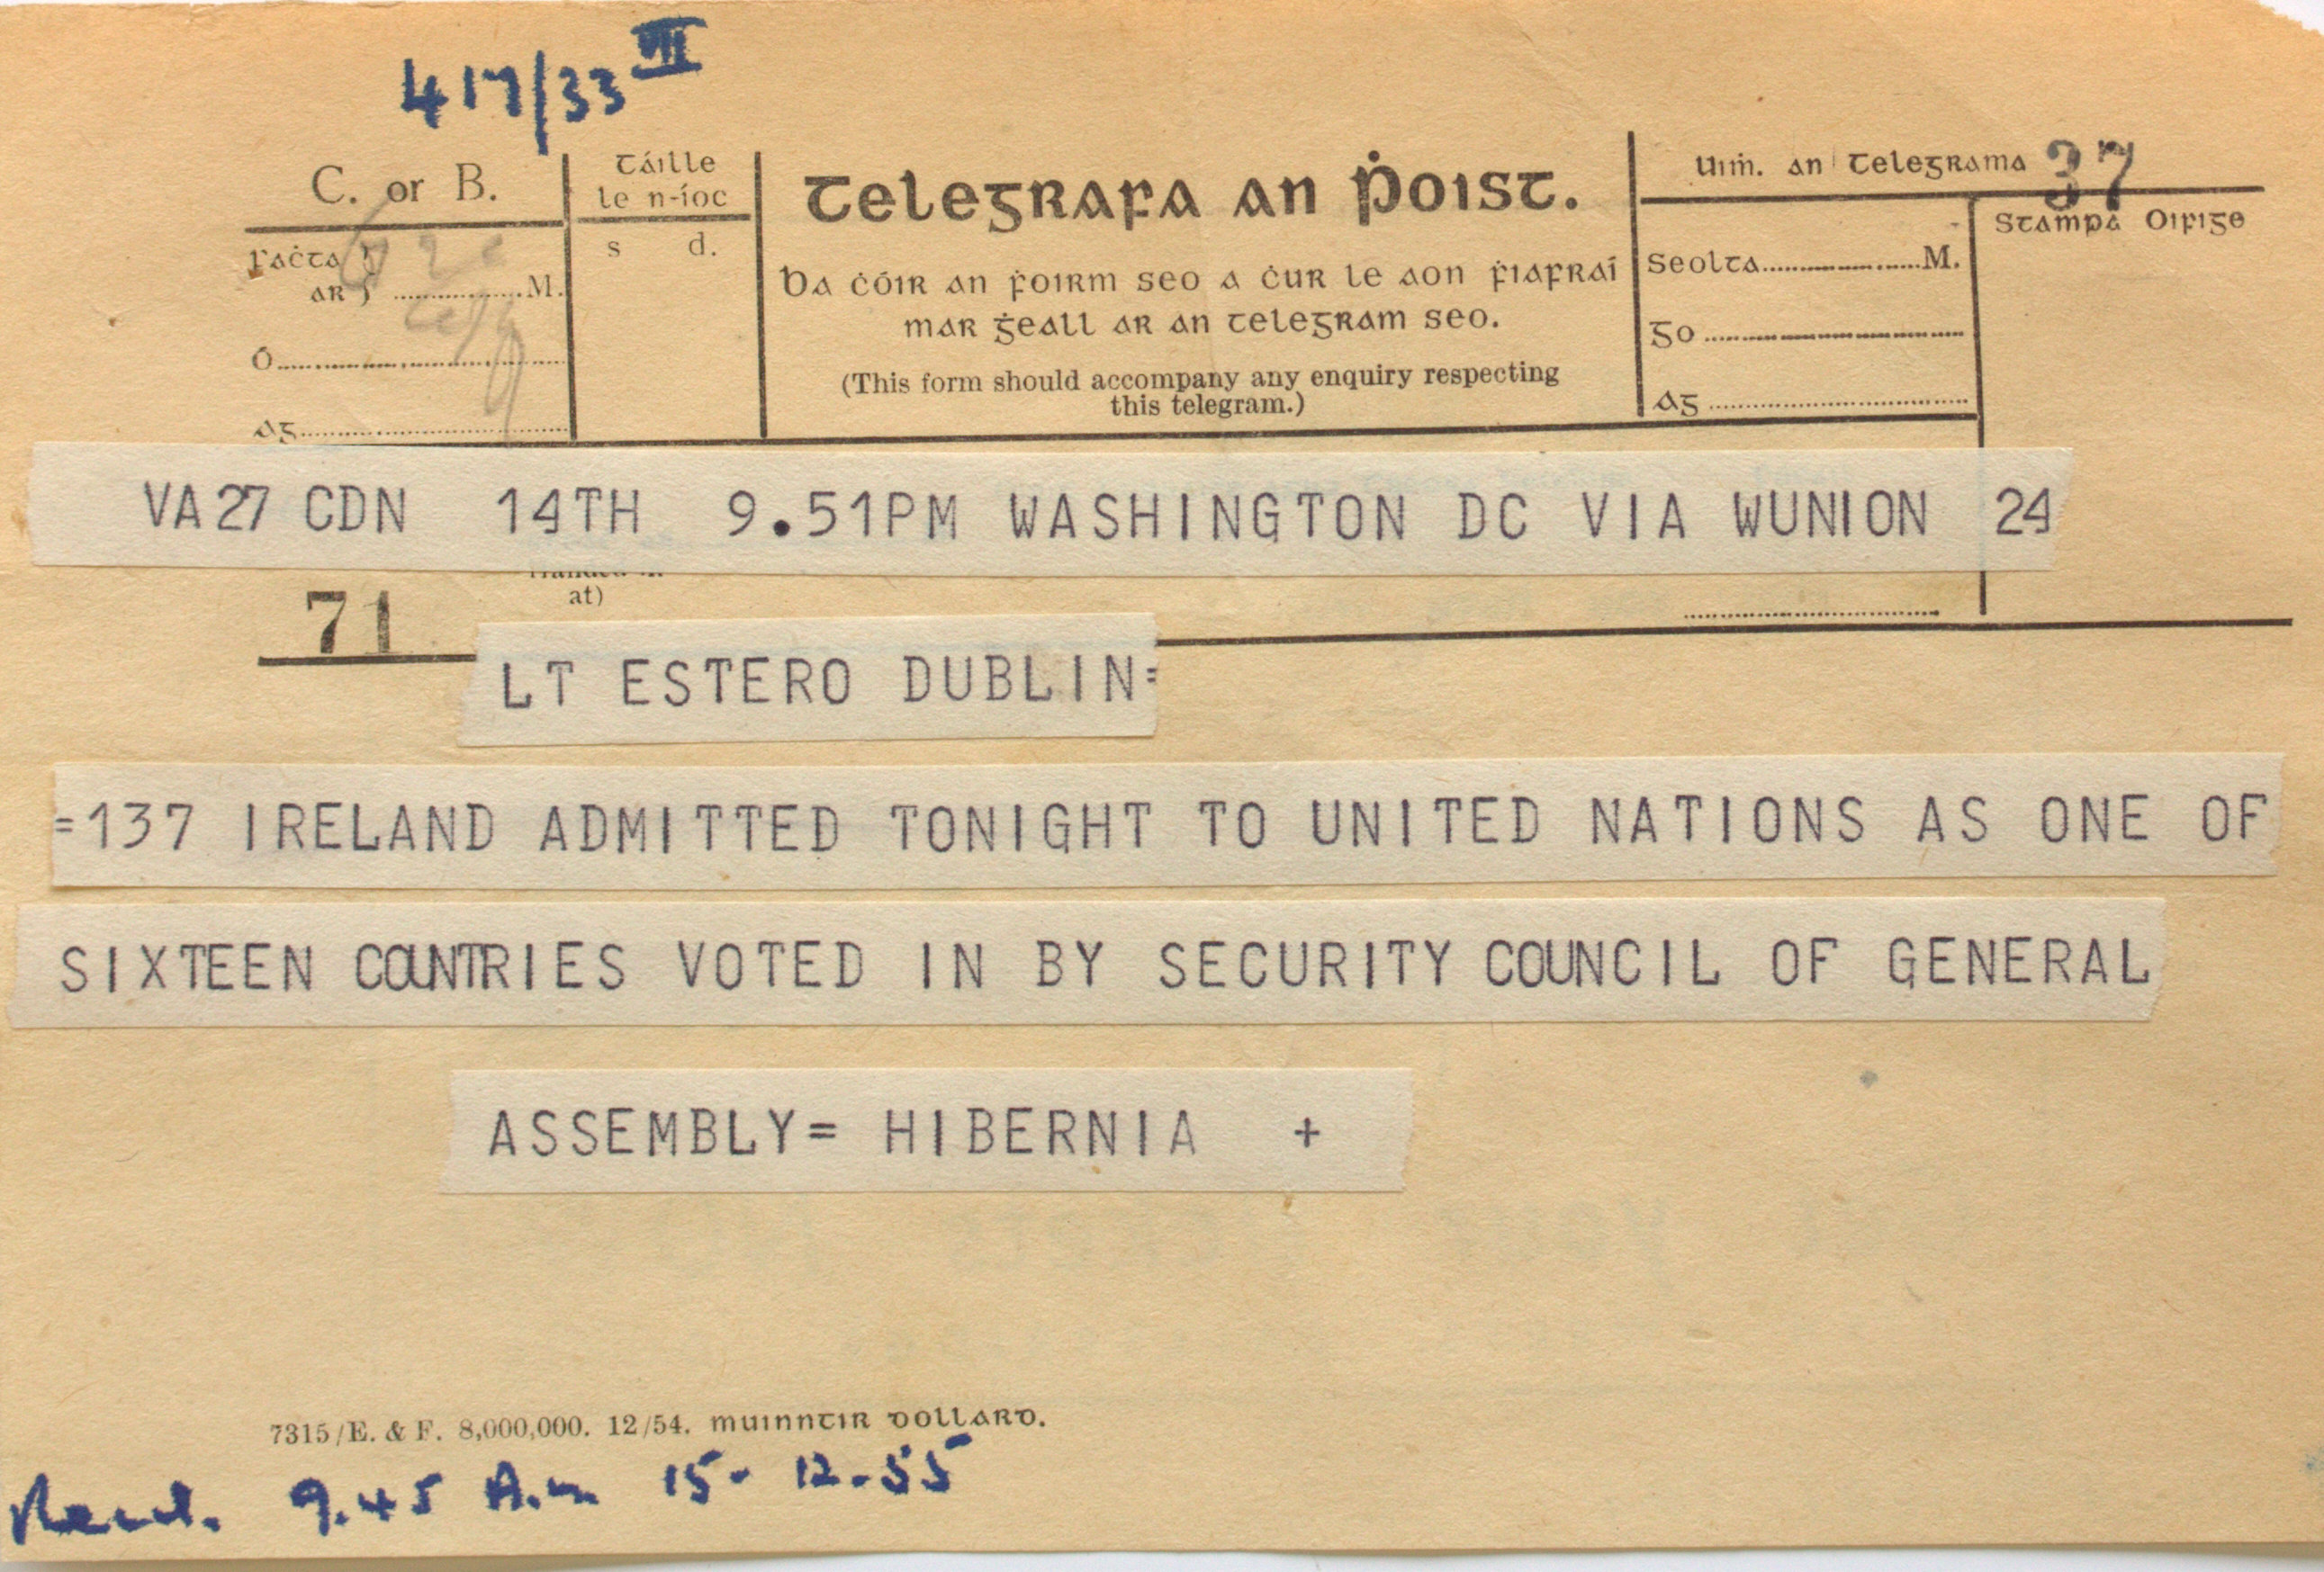 417/33 VII
C. or B.
Táille
le n-íoc
Telegrafa an Ṗoist.
Uiṁ. an Telegrama 37
Stampa Oifige
Faċta
ar } ........ M.
s d.
Ba ċóir an ḟoirm seo a ċur le aon ḟiafraí
mar ġeall ar an telegram seo.
Seolta........M.
Ó........
(This form should accompany any enquiry respecting
this telegram.)
Go ........
Ag........
Ag ........
VA27 CDN 14TH 9.51PM WASHINGTON DC VIA WUNION 24
at)
71
LT ESTERO DUBLIN=
=137 IRELAND ADMITTED TONIGHT TO UNITED NATIONS AS ONE OF
SIXTEEN COUNTRIES VOTED IN BY SECURITY COUNCIL OF GENERAL
ASSEMBLY= HIBERNIA +
7315/E. & F. 8,000,000. 12/54. Muinntir Dollard.
Recd. 9.45 A.m 15-12-55